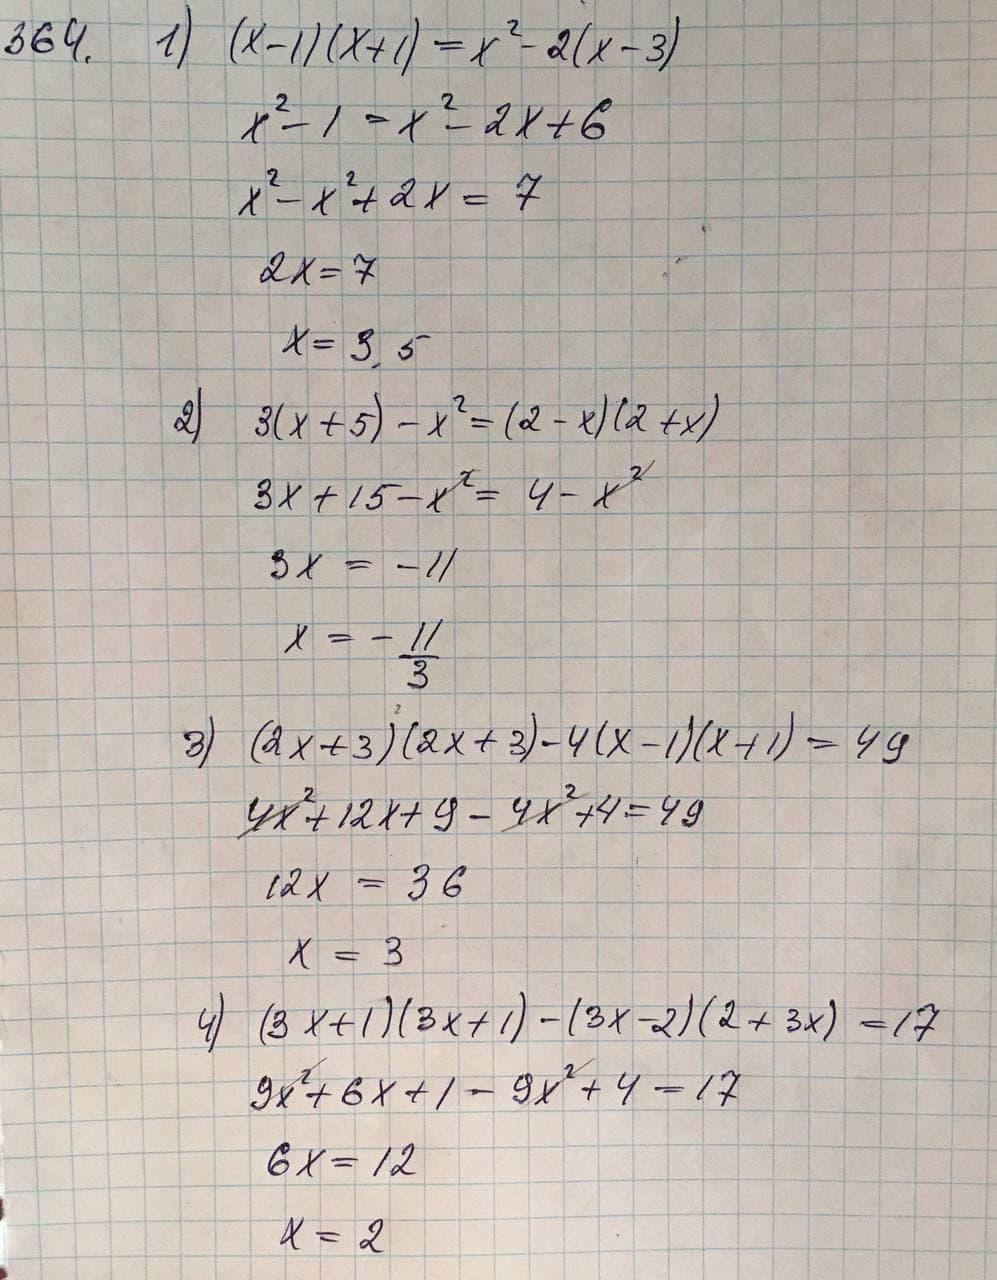 364. 1) (x-1)(x+1) = x² - 2(x-3)
x² - 1 = x² - 2x + 6
x² - x² + 2x = 7
2x = 7
x = 3,5
2) 3(x+5) - x² = (2-x)(2+x)
3x + 15 - x² = 4 - x²
3x = -11
x = -11/3
3) (2x+3)²(2x+3) - 4(x-1)(x+1) = 49
4x² + 12x + 9 - 4x² + 4 = 49
12x = 36
x = 3
4) (3x+1)(3x+1) - (3x-2)(2+3x) = 17
9x² + 6x + 1 - 9x² + 4 = 17
6x = 12
x = 2